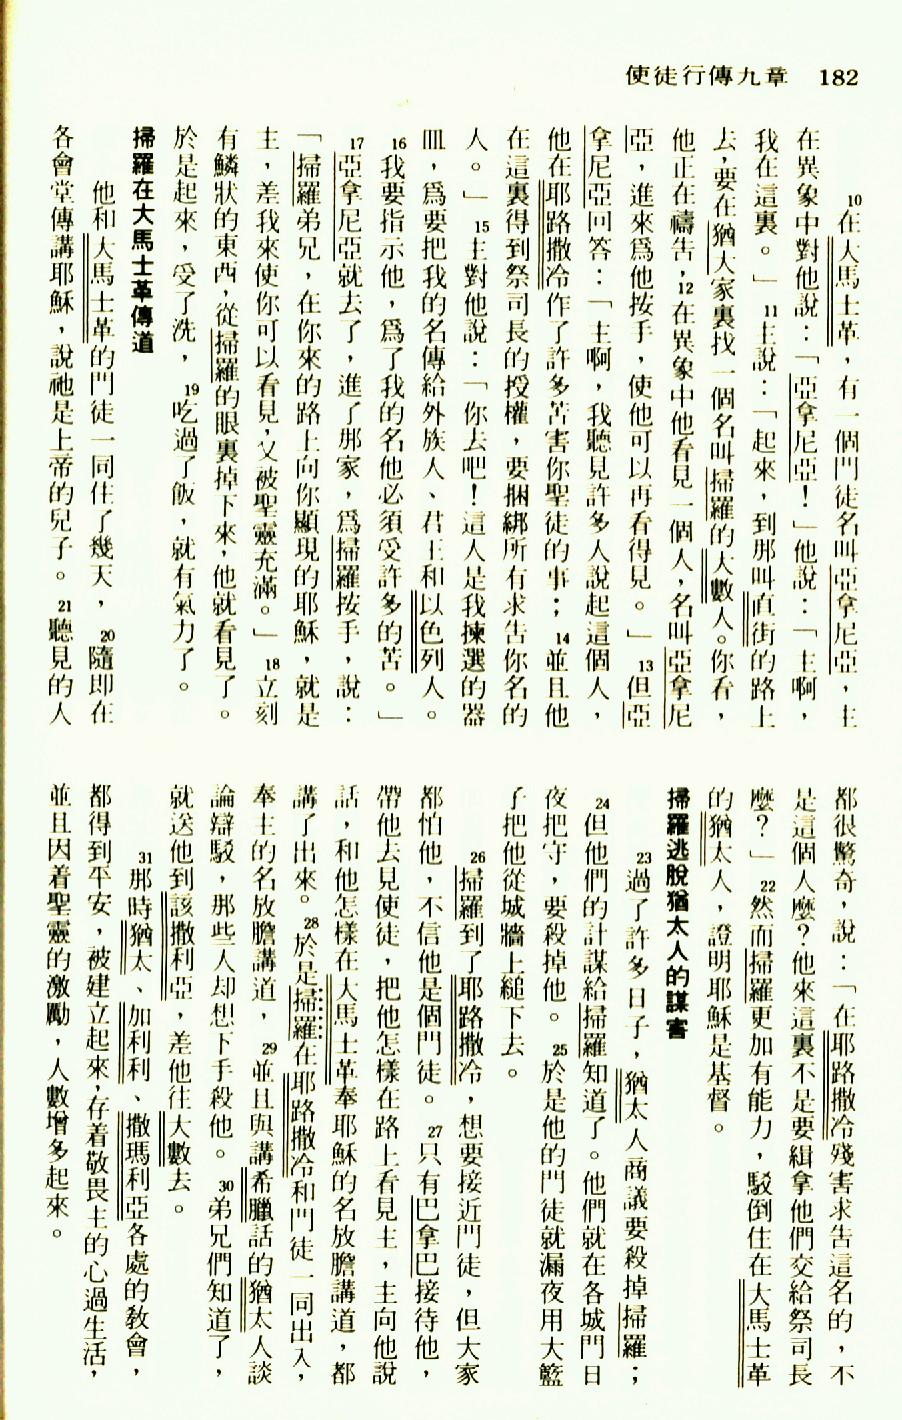 使徒行傳九章 182
10在大馬士革，有一個門徒名叫亞拿尼亞，主
在異象中對他說：「亞拿尼亞！」他說：「主啊，
我在這裏。」11主說：「起來，到那叫直街的路上
去，要在猶大家裏找一個名叫掃羅的大數人。你看，
他正在禱告，12在異象中他看見一個人，名叫亞拿尼
亞，進來爲他按手，使他可以再看得見。」13但亞
拿尼亞回答：「主啊，我聽見許多人說起這個人，
他在耶路撒冷作了許多苦害你聖徒的事；14並且他
在這裏得到祭司長的授權，要捆綁所有求告你名的
人。」15主對他說：「你去吧！這人是我揀選的器
皿，爲要把我的名傳給外族人、君王和以色列人。
16我要指示他，爲了我的名他必須受許多的苦。」
17亞拿尼亞就去了，進了那家，爲掃羅按手，說：
「掃羅弟兄，在你來的路上向你顯現的耶穌，就是
主，差我來使你可以看見，又被聖靈充滿。」18立刻
有鱗狀的東西，從掃羅的眼裏掉下來，他就看見了。
於是起來，受了洗，19吃過了飯，就有氣力了。
掃羅在大馬士革傳道
他和大馬士革的門徒一同住了幾天，20隨即在
各會堂傳講耶穌，說祂是上帝的兒子。21聽見的人
都很驚奇，說：「在耶路撒冷殘害求告這名的，不
是這個人麼？他來這裏不是要緝拿他們交給祭司長
麼？」22然而掃羅更加有能力，駁倒住在大馬士革
的猶太人，證明耶穌是基督。
掃羅逃脫猶太人的謀害
23過了許多日子，猶太人商議要殺掉掃羅；
24但他們的計謀給掃羅知道了。他們就在各城門日
夜把守，要殺掉他。25於是他的門徒就漏夜用大籃
子把他從城牆上縋下去。
26掃羅到了耶路撒冷，想要接近門徒，但大家
都怕他，不信他是個門徒。27只有巴拿巴接待他，
帶他去見使徒，把他怎樣在路上看見主，主向他說
話，和他怎樣在大馬士革奉耶穌的名放膽講道，都
講了出來。28於是掃羅在耶路撒冷和門徒一同出入，
奉主的名放膽講道，29並且與講希臘話的猶太人談
論辯駁，那些人却想下手殺他。30弟兄們知道了，
就送他到該撒利亞，差他往大數去。
31那時猶太、加利利、撒瑪利亞各處的敎會，
都得到平安，被建立起來，存着敬畏主的心過生活，
並且因着聖靈的激勵，人數增多起來。